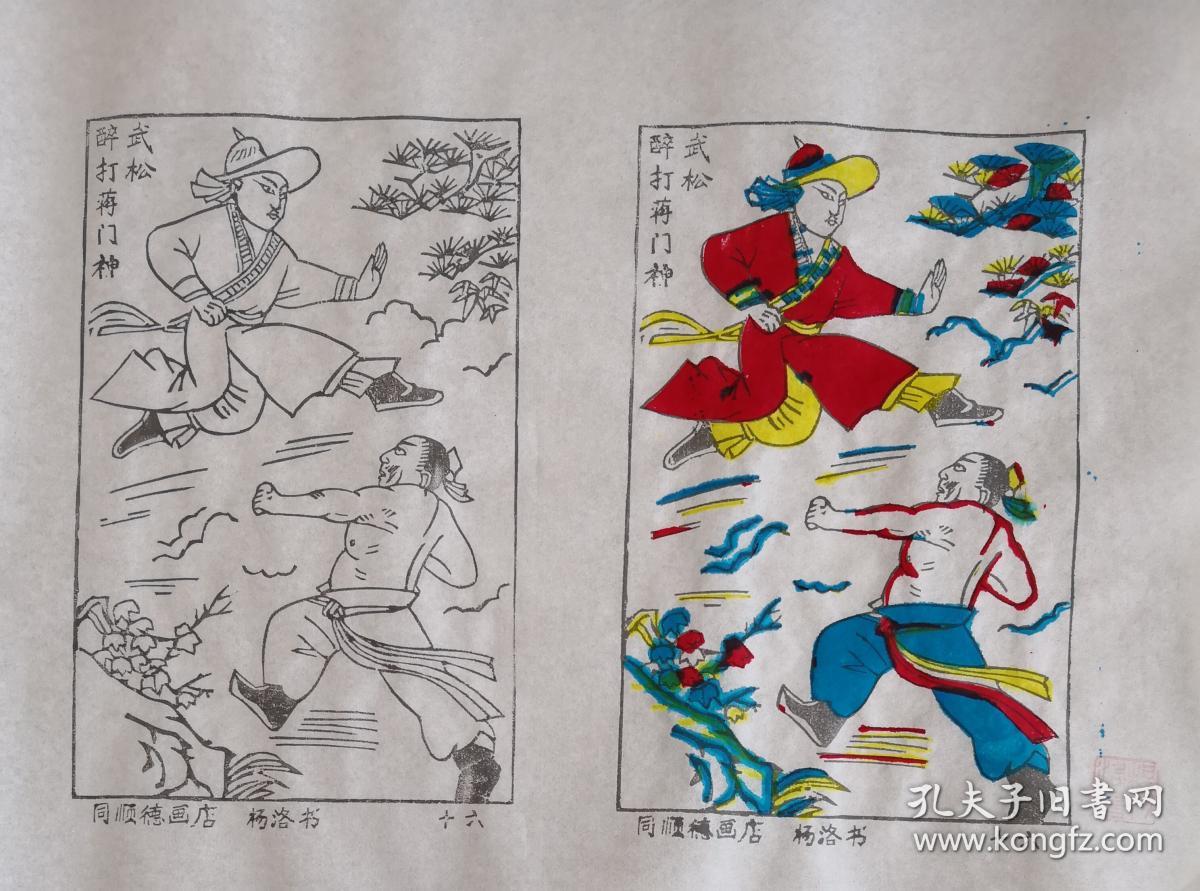 武松
醉打蒋门神
武松
醉打蒋门神
同顺德画店 杨洛书 十六
同顺德画店 杨洛书
孔夫子旧書网
www.kongfz.com